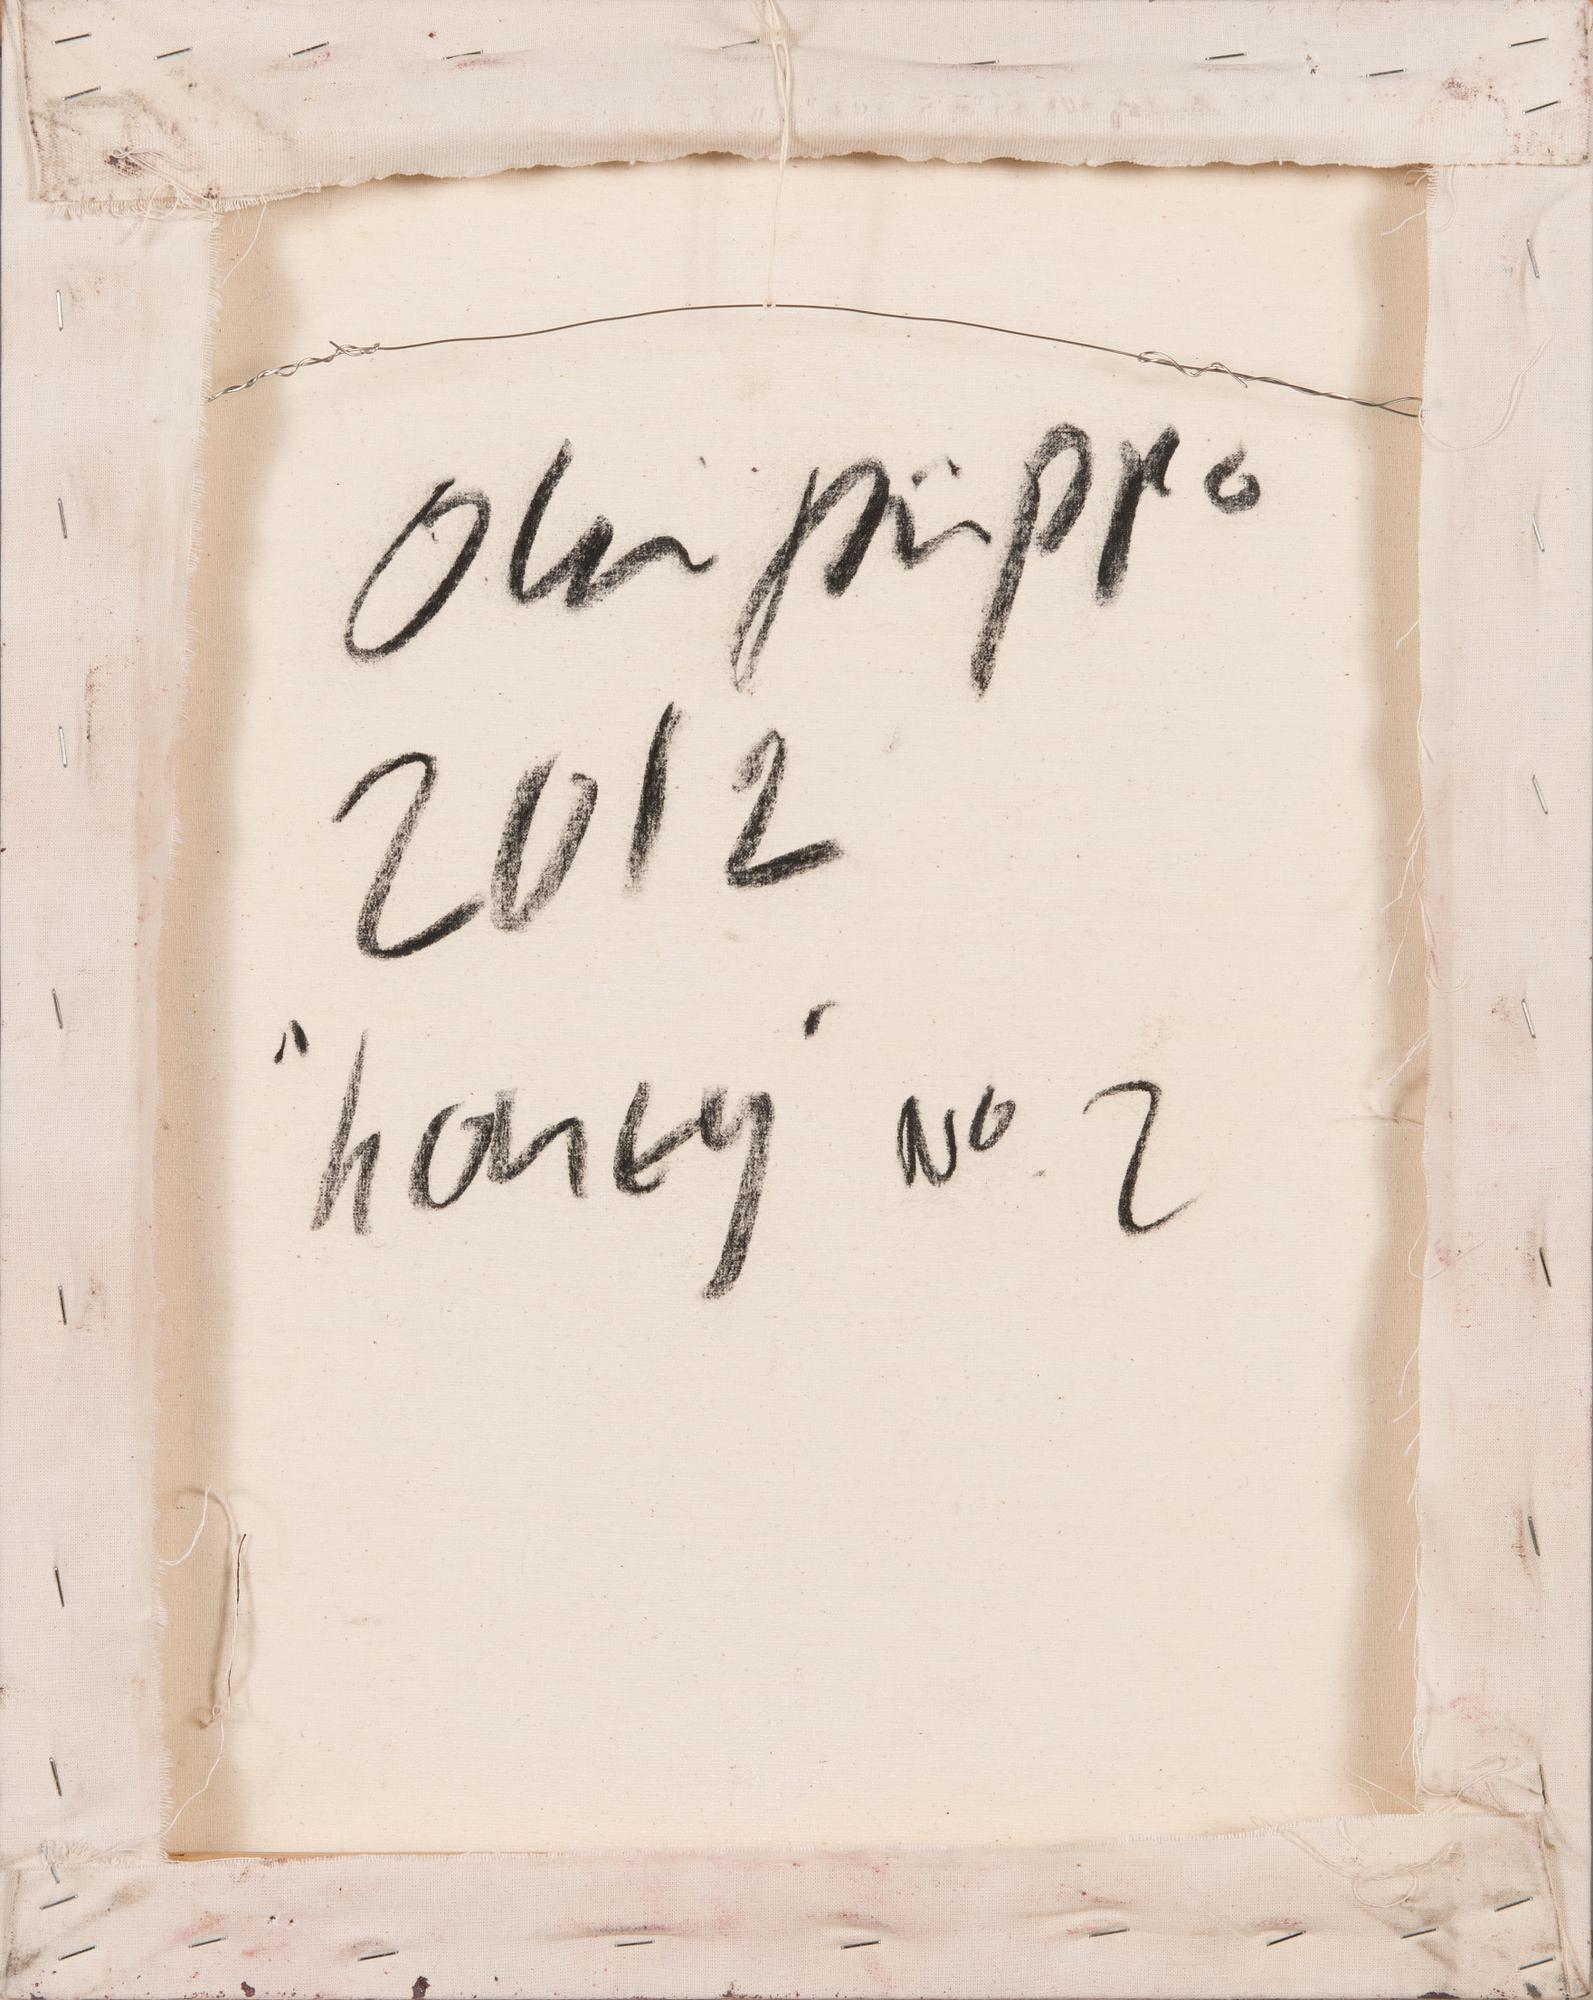 Olli Piippo
2012
"honey" No. 2